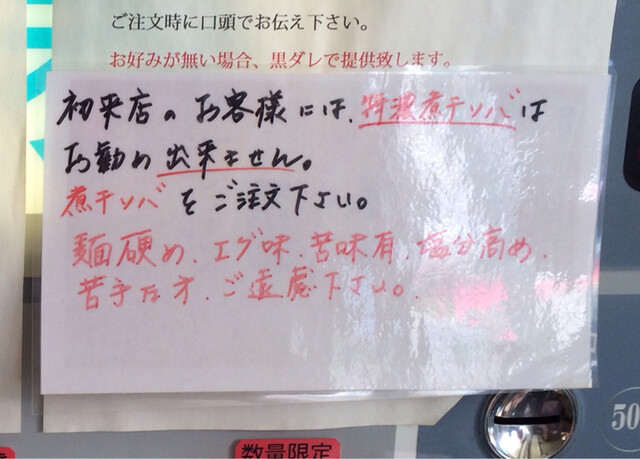 ご注文時に口頭でお伝え下さい。
お好みが無い場合、黒ダレで提供致します。
初来店のお客様には、特濃煮干ソバは
お勧め出来ません。
煮干ソバをご注文下さい。
麺硬め、エグ味、苦味有、塩分高め、
苦手な方、ご遠慮下さい。
数量限定
50